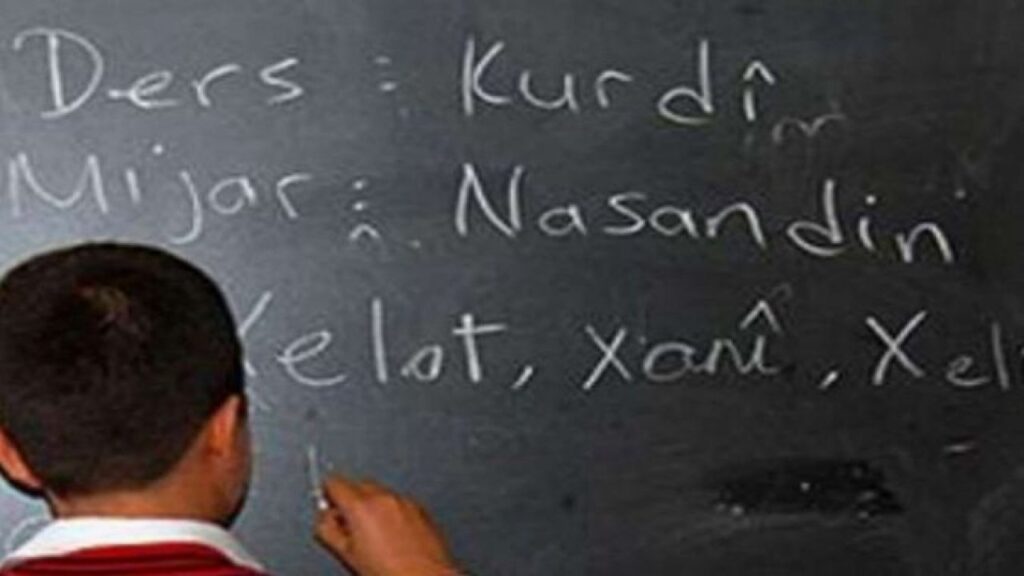 Ders : Kurdî
Mijar : Nasandin
Xelat, Xanî,